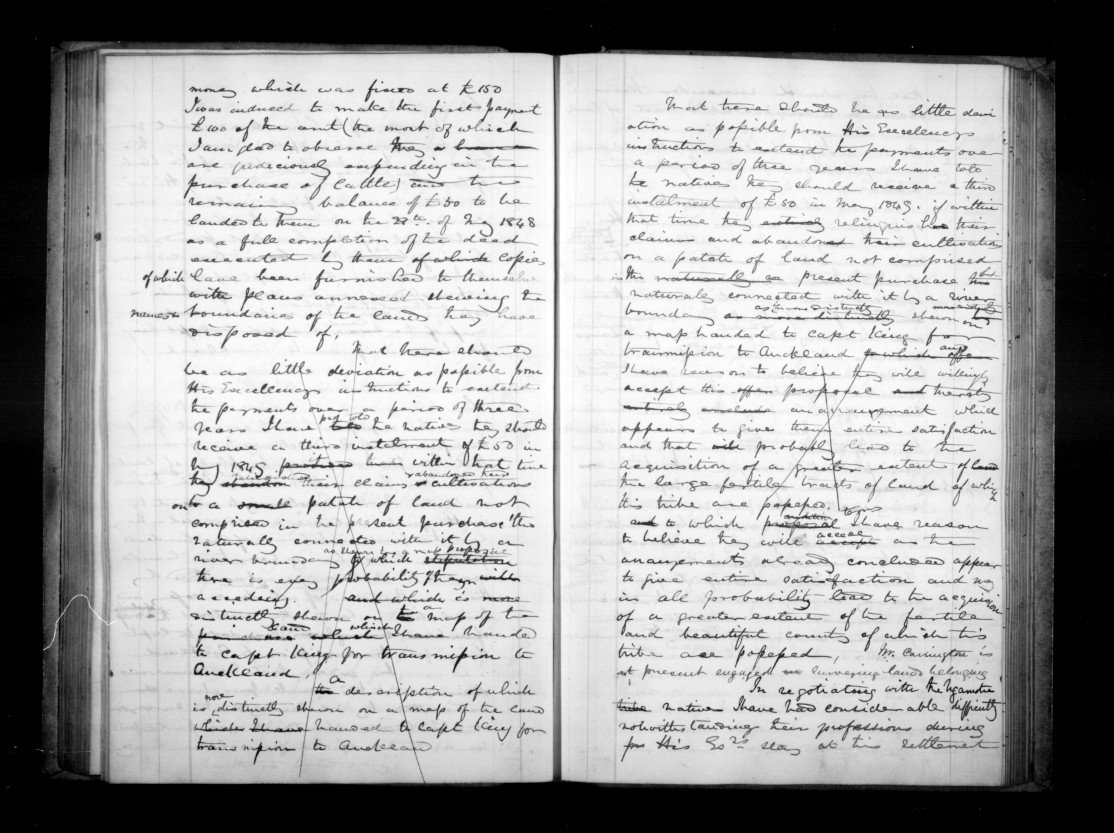 money which was fixed at £150
I was induced to make the first payment
£100 of the amt (the most of which
I am glad to observe they a
are judiciously expending in the
purchase of Cattle) and the
remaing balance of £50 to be
handed to them on the th. of May 1848
as a full completion of the deed
executed by them of which copies
of which have been furnished to themselves
with plans annexed shewing the
names & boundaries of the lands they have
disposed of,
That there should
be as little deviation as possible from
His Excellencys instructions to extend
the payments over a period of three
years I have told the natives they should
receive a third instalment of £50 in
May 1849 them within that time
they abandon their claims & cultivations
abandoned their
on a small patate of land not
comprised in the present purchase tho
naturally connected with it by a
river boundary to which stipulation
as shewn by a map proposal
there is every probability of they will
acceding. and which is more
distinctly shewn on a map of the
land which I have handed
to Capt King for transmission to
Auckland,
a description of which
is more distinctly shewn on a map of the land
which I have handed to Capt King for
transmission to Auckland
That there should be as little devi
ation as possible from His Excellencys
instructions to extend the payments over
a period of three years I have told
the natives they should receive a third
instalment of £50 in May 1849. if within
that time they entirely relinquished their
claims and abandoned their cultivation
on a patate of land not comprised
in the naturally present purchase but
naturally connected with it by a river
boundary as more distinctly shewn on
as more distinctly
a map handed to Capt King for
transmission to Auckland to which offer and
I have reason to believe they will willingly
accept this offer proposal and thereby
entirely conclude an arrangement which
appears to give them entire satisfaction
and that will probably lead to the
acquisition of a greater extent of land
the large fertile tracts of land of which
this tribe are possessed.
and to which proposal I have reason
addition
to believe they will accept as the
accede
arrangements already concluded appear
to give entire satisfaction and may
in all probability lead to the acquisition
of a greater extent of the fertile
and beautiful country of which this
tribe are possessed, Mr. Carrington is
at present engaged in surveying lands belonging
In negotiating with the Ngamotu
tribe natives I have had considerable difficulty
notwithstanding their professions during
for His Excys stay at this settlement